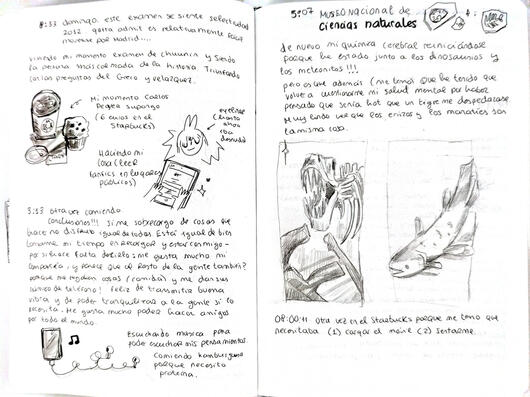 8:33 domingo. este examen se siente selectividad
2022. ojalá admit es relativamente fácil
moverse por Madrid....
viviendo mi momento examen de chuunin y siendo
la persona más calmada de la historia. Triunfando
con las preguntas del Greco y Velázquez.
Mi momento Carlos
Peguer supongo
(6 euros en el
Starbucks)
Haciendo mi
cosa (leer
fanfics en lugares
públicos)
eyeliner
5:13 otra vez comiendo
conclusiones!!! Si me sobrecargo de cosas que
hacer no disfruto igual de todas. Está igual de bien
tomarme mi tiempo en recargar y estar conmigo -
por si hiciese falta decirlo: me gusta mucho mi
compañía, y parece que al resto de la gente también?
porque me regalan cosas (comida) y me dan sus
números de teléfono! feliz de transmitir buena
vibra y de poder tranquilizar a la gente si lo
necesita. Me gusta mucho poder hacer amigos
por todo el mundo.
Escuchando música para
no poder escuchar mis pensamientos.
Comiendo hamburguesa
porque necesito
proteína.
5:07 MUSEO NACIONAL DE
Ciencias naturales
de nuevo mi química cerebral reiniciándose
porque he estado junto a los dinosaurios y
los meteoritos!!!
pero estuve además (me temo) que he tenido que
volver a cuestionarme mi salud mental por haber
pensado que sería hot que un tigre me despedazase.
Muy lindo ver que los erizos y los manatíes son
la misma cosa.
08:00:11 otra vez en el Starbucks porque me temo que
necesitaba (1) cargar el móvil (2) sentarme.